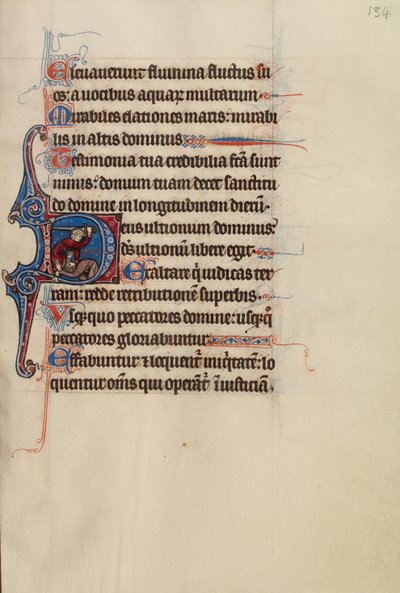 134
Elevaverunt flumina fluctus su
os: a vocibus aquaꝝ multarum.
Mirabiles elationes maris: mirabi
lis in altis dominus
Testimonia tua credibilia fc̄a sunt
nimis: domum tuam decet sanctitu
do domine in longitudinem dierū.
Deus ultionum dominus:
ds̄ ultionū libere egit.
Exaltare qͥ iudicas ter
ram: redde retributionē superbis.
Usq̢quo peccatores domine: usq̢qͦ
peccatores gloriabuntur
Effabuntur ⁊ loquent᷑ iniq̇tatē: lo
quentur om̄s qui operāt᷑ īiusticiā.